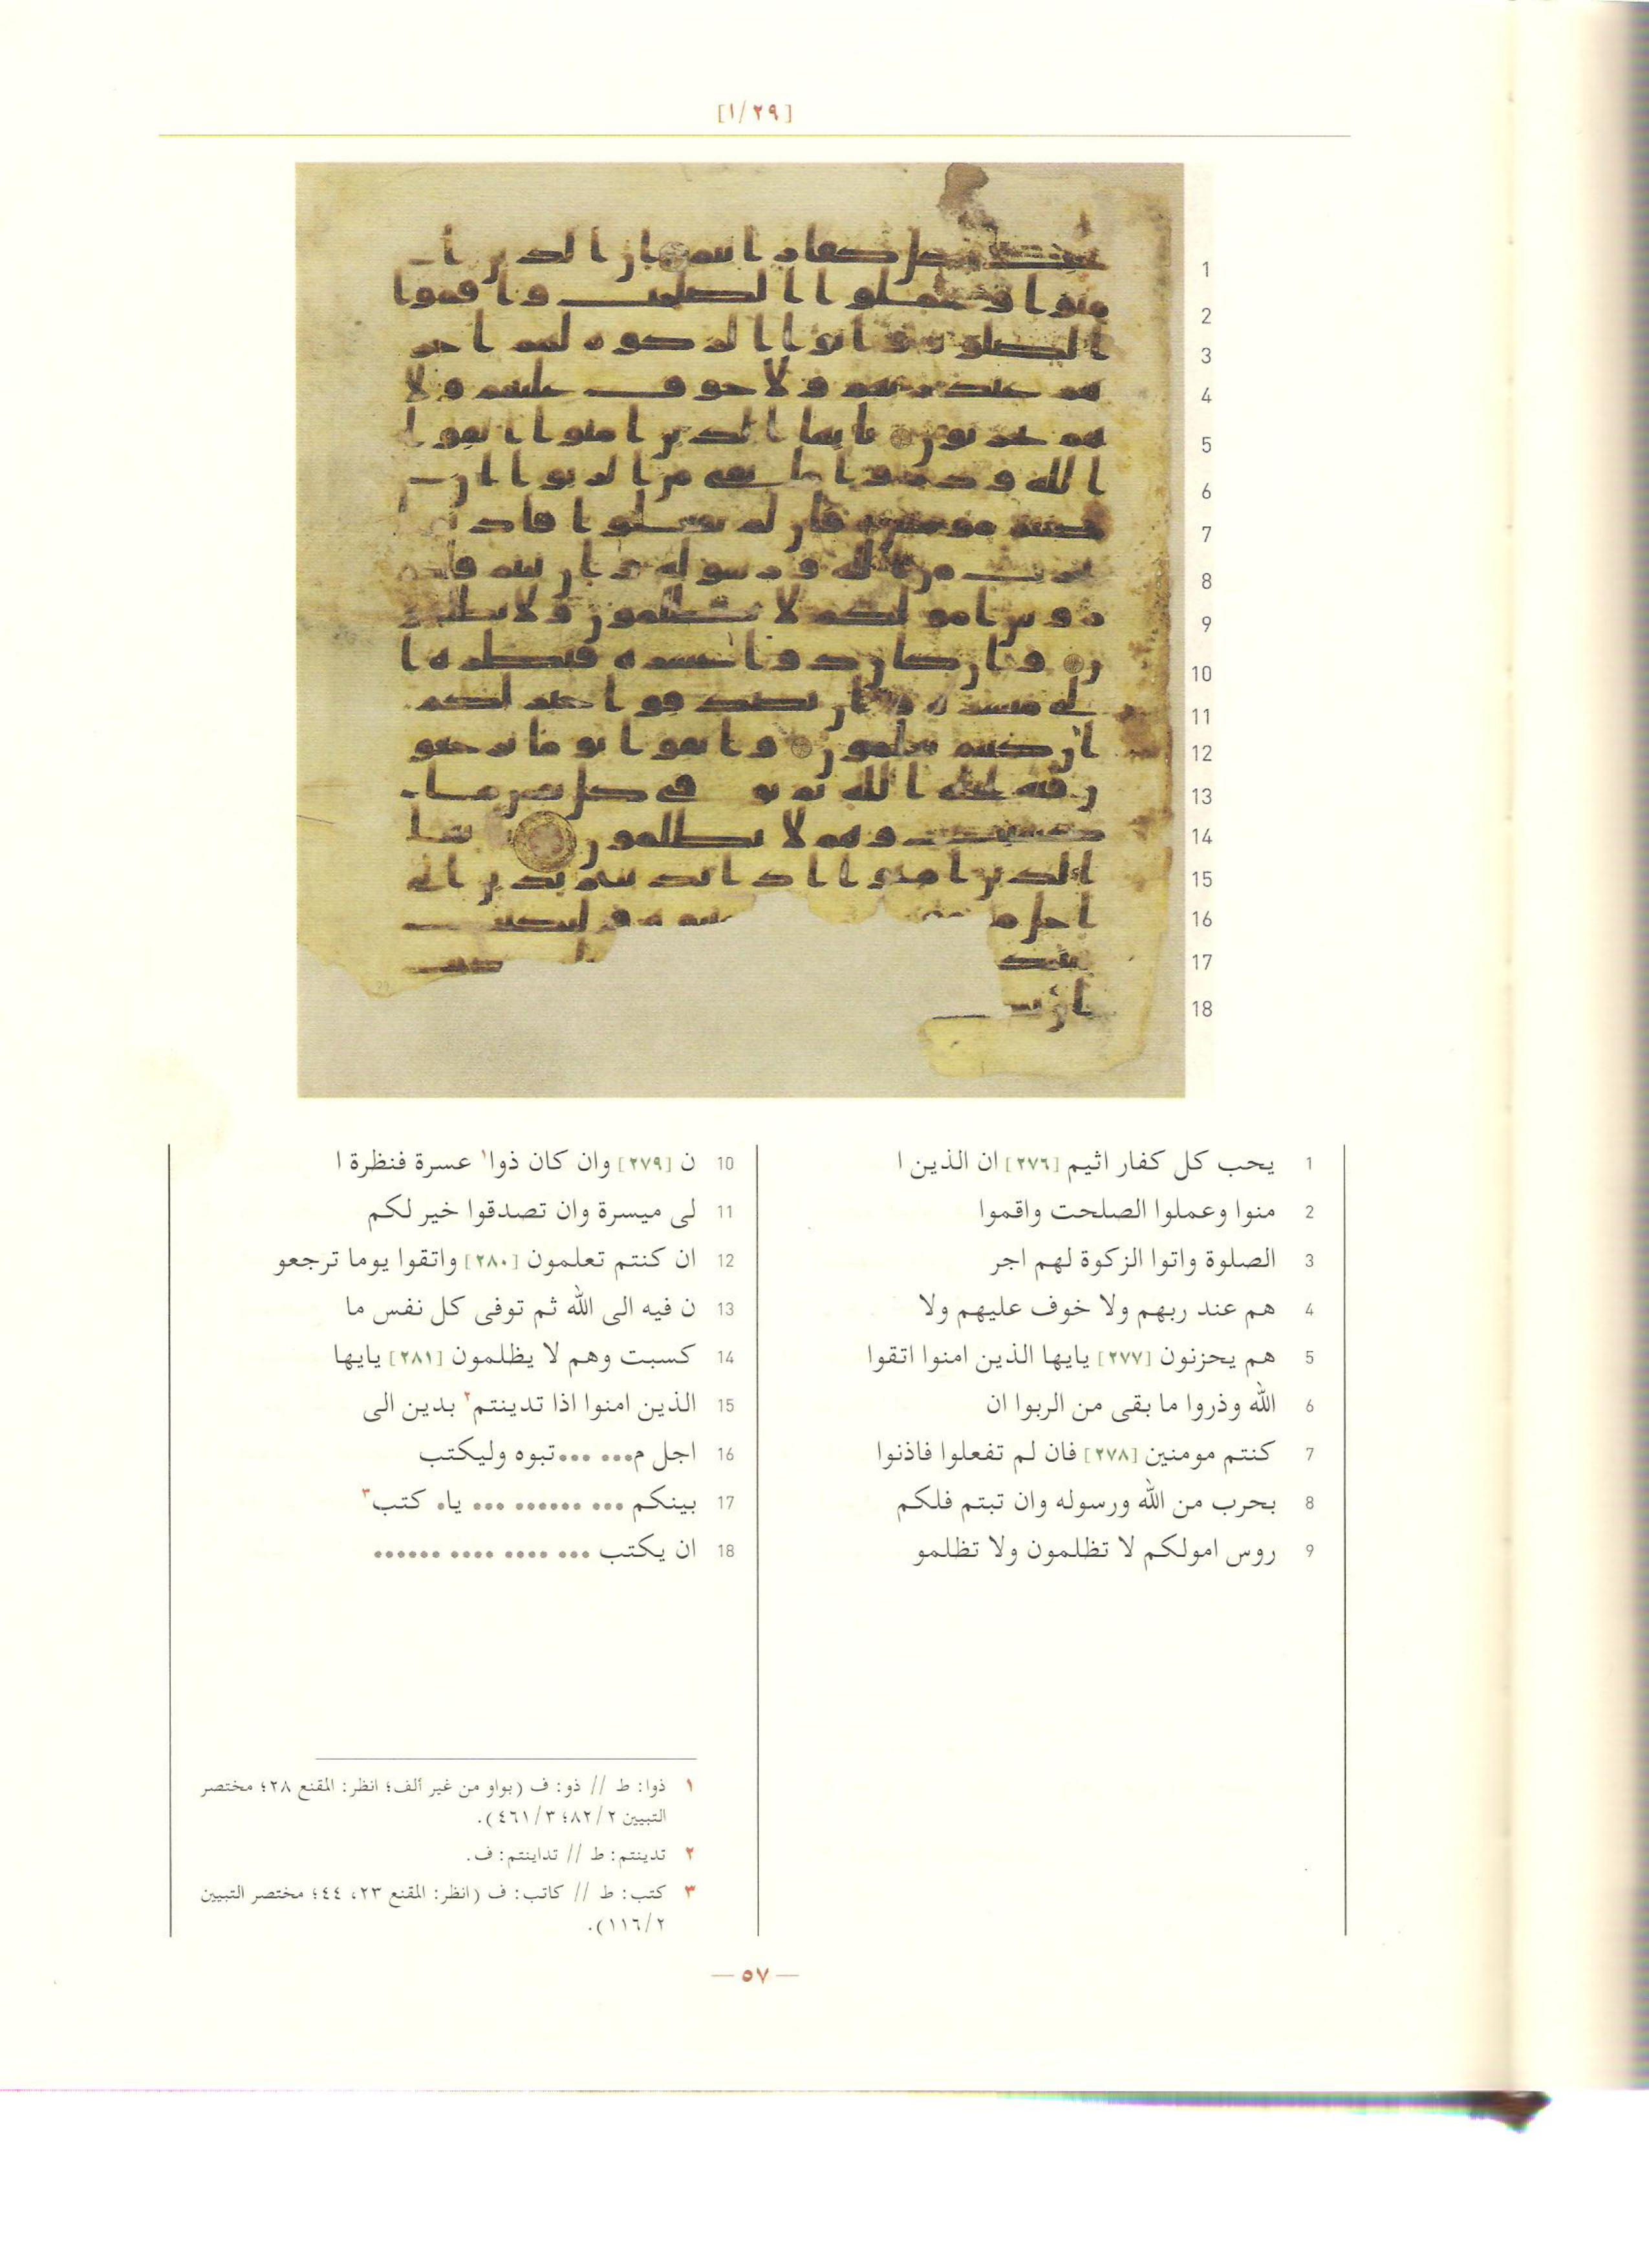 [١/٢٩]
1 يحب كل كفار اثيم [٢٧٦] ان الذين ا
2 منوا وعملوا الصلحت واقموا
3 الصلوة واتوا الزكوة لهم اجر
4 هم عند ربهم ولا خوف عليهم ولا
5 هم يحزنون [٢٧٧] يايها الذين امنوا اتقوا
6 الله وذروا ما بقى من الربوا ان
7 كنتم مومنين [٢٧٨] فان لم تفعلوا فاذنوا
8 بحرب من الله ورسوله وان تبتم فلكم
9 روس امولكم لا تظلمون ولا تظلمو
10 ن [٢٧٩] وان كان ذوا١ عسرة فنظرة ا
11 لى ميسرة وان تصدقوا خير لكم
12 ان كنتم تعلمون [٢٨٠] واتقوا يوما ترجعو
13 ن فيه الى الله ثم توفى كل نفس ما
14 كسبت وهم لا يظلمون [٢٨١] يايها
15 الذين امنوا اذا تدينتم٢ بدين الى
16 اجل م... ...تبوه وليكتب
17 بينكم ... ...... ... يا. كتب٣
18 ان يكتب ... .... .... ......
١ ذوا: ط // ذو: ف (بواو من غير ألف؛ انظر: المقنع ٢٨؛ مختصر
التبيين ٨٢/٢؛ ٤٦١/٣).
٢ تدينتم: ط // تداينتم: ف.
٣ كتب: ط // كاتب: ف (انظر: المقنع ٢٣، ٤٤؛ مختصر التبيين
١١٦/٢).
— ٥٧ —